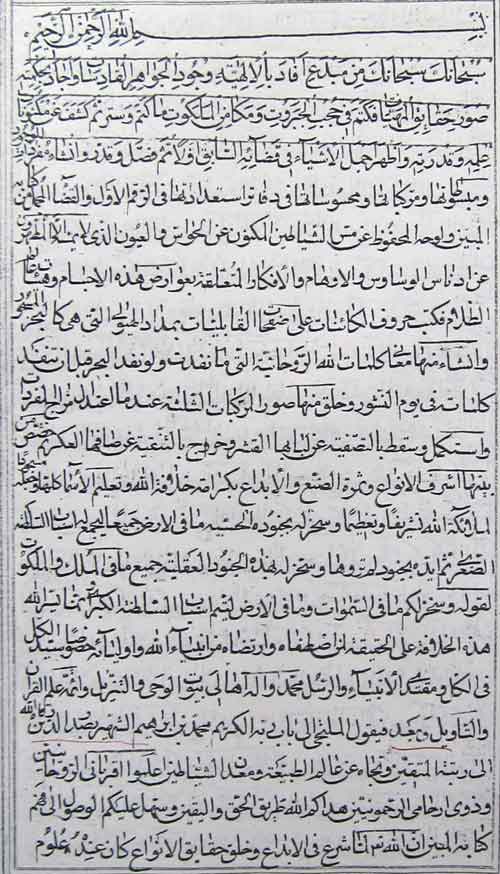 بسم الله الرحمن الرحيم
سبحانك سبحانك من مبدع افاد بالالهية وجود الجواهر القادسات واجاد بحكمته
صور حقايق المهيات فكتم في حجب الجبروت ومكامن الملكوت ما كتم وستر ثم كشف عن مكنونات
علمه وقدرته واظهر جمل الاشياء في قضائه السابق ولا ثم فصل وقدر وانشاء مفردات
ومبسوطها ومركباتها ومحسوساتها في دفاتر استعداداتها في الرقم الاول والقضاء
المبين ولوحه المحفوظ عن مس الشياطين المكنون عن الحواس والعيون الذي لا يمسه الا المطهرون
عن ادناس الوساوس والاوهام والافكار المتعلقة بعوارض هذه الاجسام وهيئات
الظلام فكتب حروف الكائنات على صفحات القابليات بمداد الهيولى التي هي كالبحر المسجور
وانشاء منها معاني كلمات الله الروحانية التي ما نفدت ولو نفد البحر قبل ان تنفد
كلمات في يوم النشور وخلق منها صور المركبات الثلثة عند ما اعتدل مزاج المفردات
واستكمل وسقط بالتصفية عن لبابها القشر وخروج بالتنقية عن صافها العكر ثم خصص من
بينها اشرف الانواع وثمرة الصنع والابداع بكرامة خلافة الله وتعليم الاسماء كلها وجعله مسجود
ملائكة الله تشريفا وتعظيما وسخر له بجنوده الحسية ما في الارض جميعا لجمع اسباب السلطنة
الصغرى ثم ايده بجنود لم تروها وسخر له بهذه الجنود العقلية جميع ما في الملك والملكوت
لقوله وسخر لكم ما في السموات وما في الارض ليتم اسباب السلطنة الكبرى
هذه الخلافة على الحقيقة لمن اصطفاه وارتضاه من انبياء الله واوليائه خصوصا سيد الكل
في الكل ومقتدى الانبياء والرسل محمد واله اهالي بيوت الوحي والتنزيل وائمة علم القران
والتاويل وبعد فيقول الملتجي الى باب ربه الكريم محمد بن ابراهيم الشهير بصدر الدين رقاه الله
الى رتبة المتقين ونجاه عن عالم الطبيعة ومعدن الشياطين اعلموا اقربائي الروحانيين
وذوي ارحامي الرحمونيين هداكم الله طريق الحق واليقين وسهل عليكم الوصول الى فهم
كتابه المبين ان الله تع لما شرع في الابداع وخلق حقايق الانواع كان عنده علوم